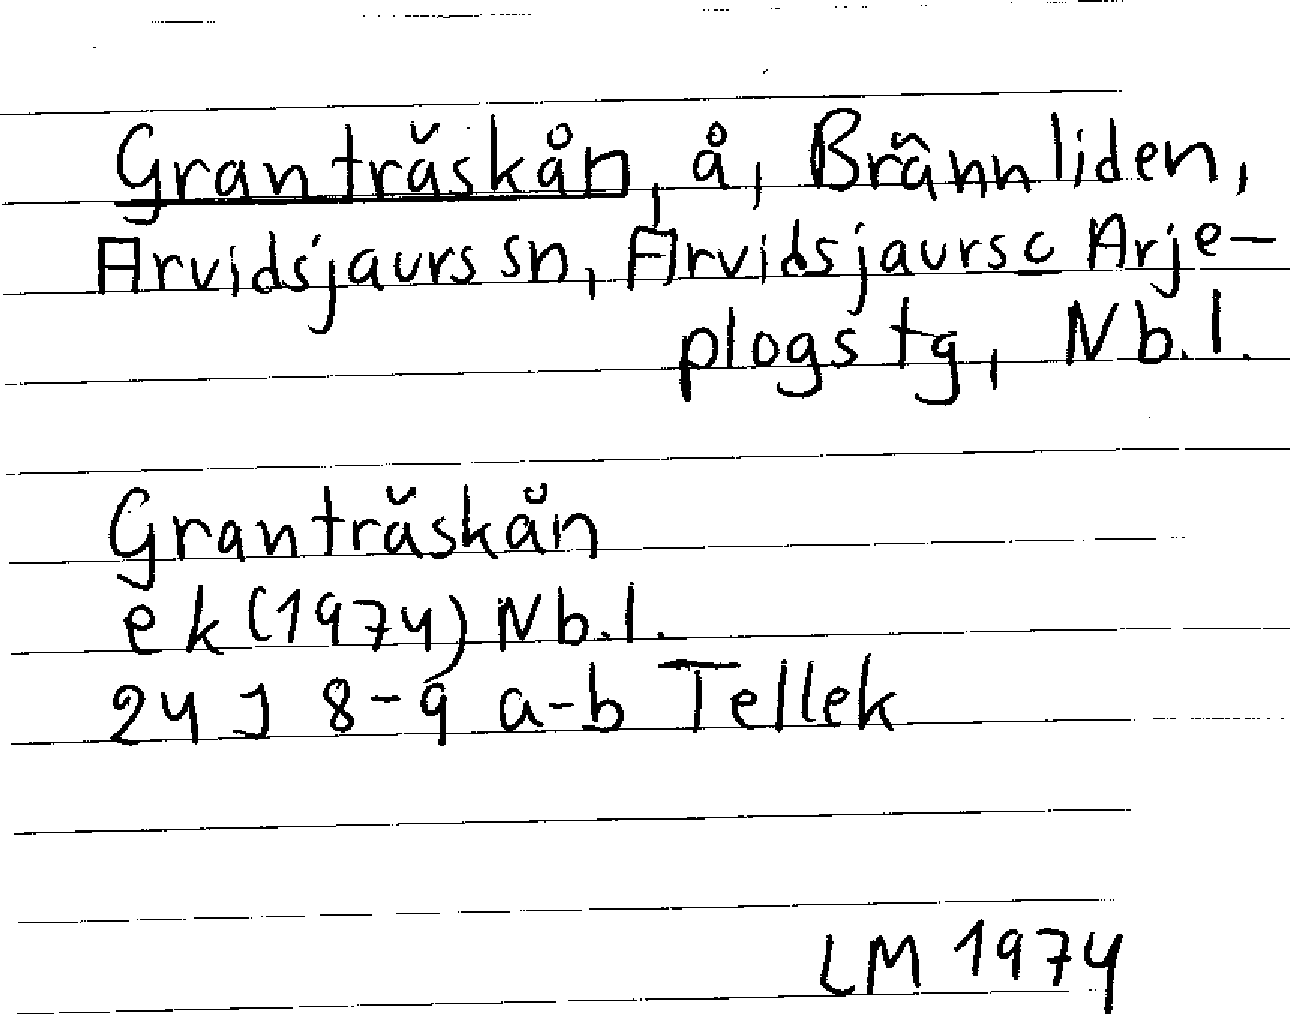 Granträskån, å, Brännliden,
Arvidsjaurs sn, Arvidsjaurs o Arje-
plogs tg, Nb.l.
Granträskån
ek (1974) Nb.l.
24 J 8-9 a-b Tellek
LM 1974